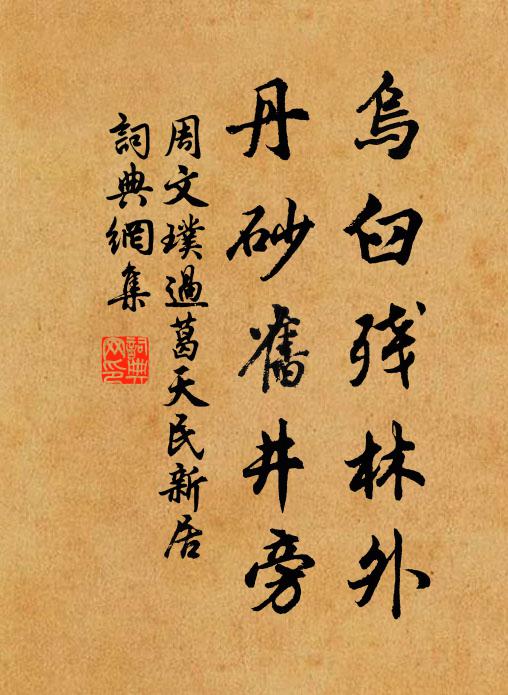 烏臼残林外
丹砂舊井旁
周文璞過葛天民新居
詞典網集
詞典網印